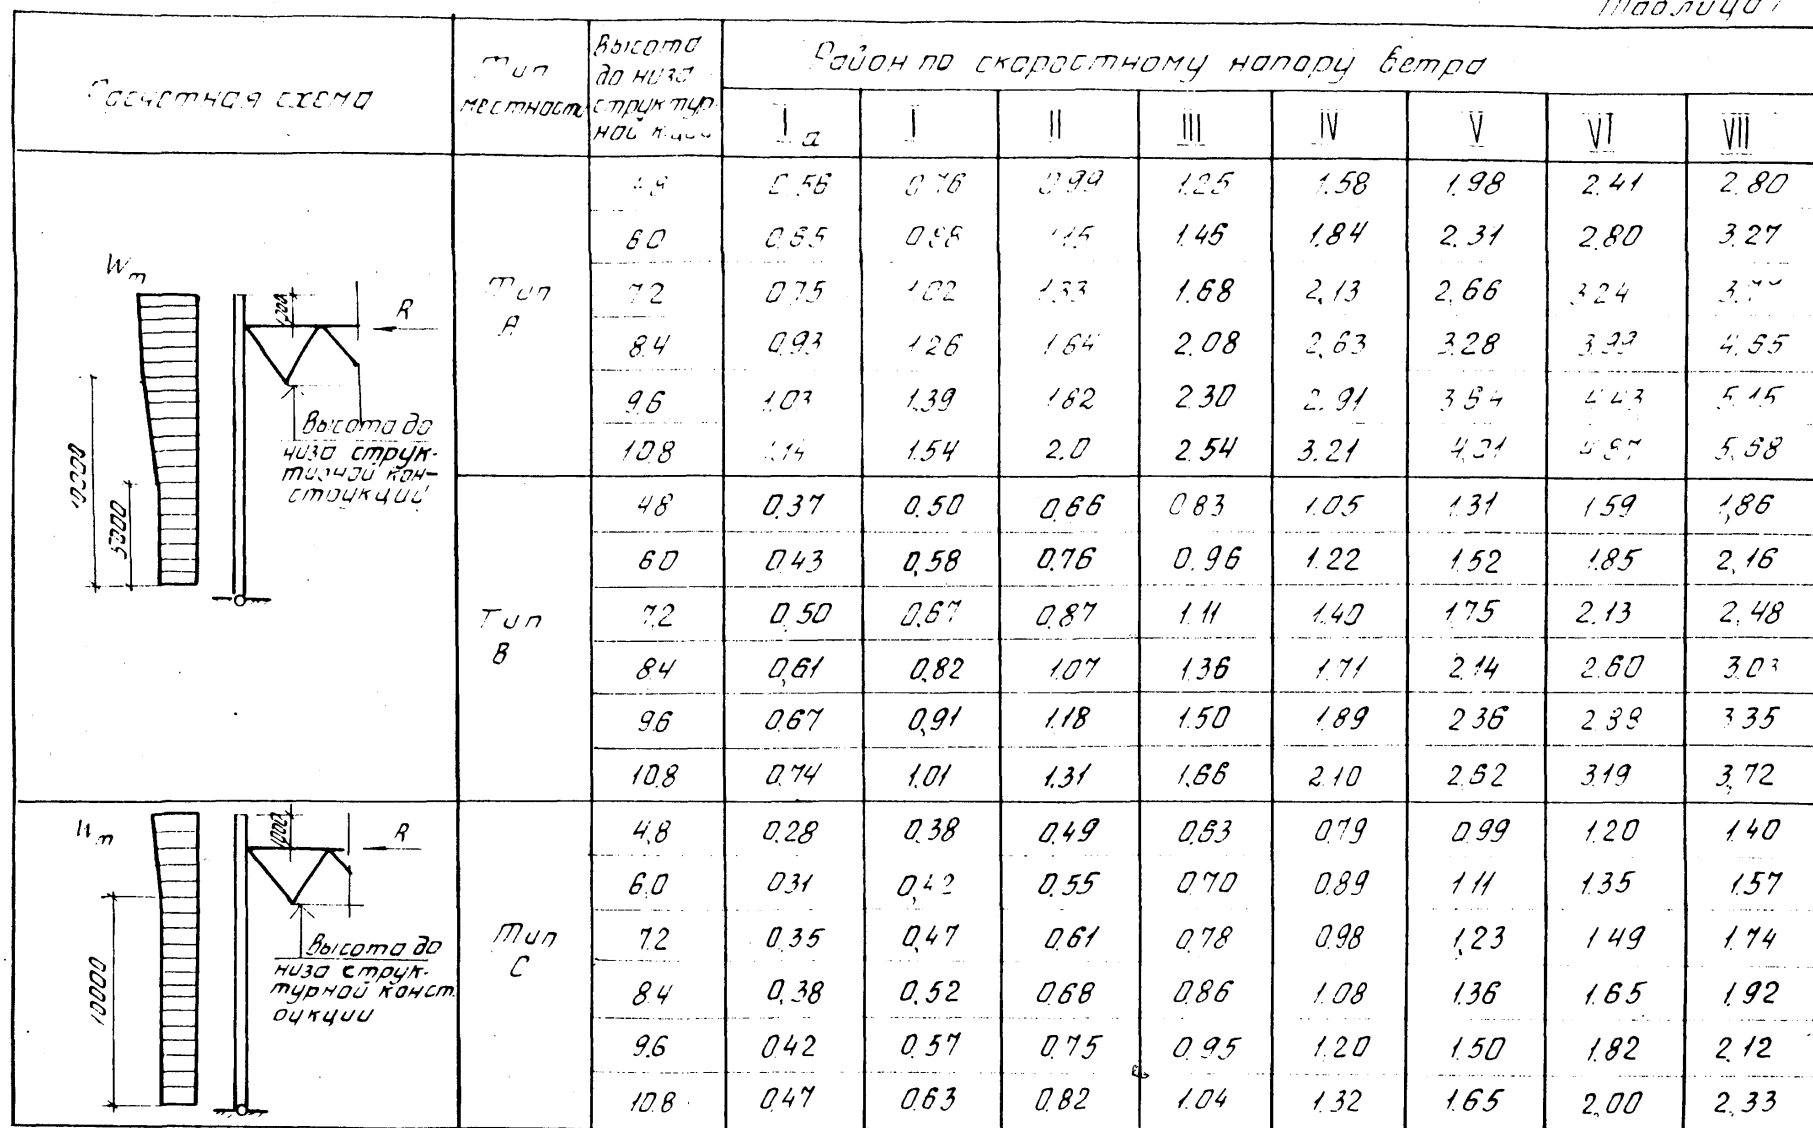 Таблица 1
Расчетная схема
Тип
местности
Высота
до низа
структур-
ной к-ции
Район по скоростному напору ветра
Iа I II III IV V VI VII
Wm
1200
R
Высота до
низа струк-
турной кон-
струкции
10000
5000
Тип
А
4.8 0.56 0.76 0.99 1.25 1.58 1.98 2.41 2.80
6.0 0.65 0.88 1.15 1.46 1.84 2.31 2.80 3.27
7.2 0.75 1.02 1.33 1.68 2,13 2.66 3.24
8.4 0.93 1.26 1.64 2.08 2,63 3.28 3.99 4.65
9.6 1.03 1.39 1.82 2.30 2.91 3.64 4.43 5.15
10.8 1.14 1.54 2.0 2.54 3.21 4.01 4.87 5.68
Тип
В
4.8 0.37 0.50 0.66 0.83 1.05 1.31 1.59 1,86
6.0 0.43 0,58 0.76 0.96 1.22 1.52 1.85 2,16
7.2 0.50 0.67 0.87 1.11 1.40 1.75 2.13 2,48
8.4 0,61 0,82 1.07 1.36 1.71 2.14 2.60 3.03
9.6 0.67 0,91 1.18 1.50 1.89 2.36 2.88 3.35
10.8 0.74 1.01 1.31 1,66 2.10 2.62 3.19 3,72
Wm
1200
R
Высота до
низа струк-
турной конст
рукции
10000
Тип
С
4,8 0.28 0.38 0,49 0,63 0,79 0.99 1.20 1.40
6.0 0.31 0,42 0,55 0,70 0.89 1.11 1.35 1.57
7.2 0.35 0,47 0.61 0,78 0.98 1,23 1.49 1.74
8.4 0,38 0,52 0.68 0.86 1.08 1.36 1.65 1.92
9.6 0.42 0.57 0.75 0.95 1.20 1.50 1.82 2.12
10.8 0.47 0.63 0.82 1.04 1.32 1.65 2,00 2.33